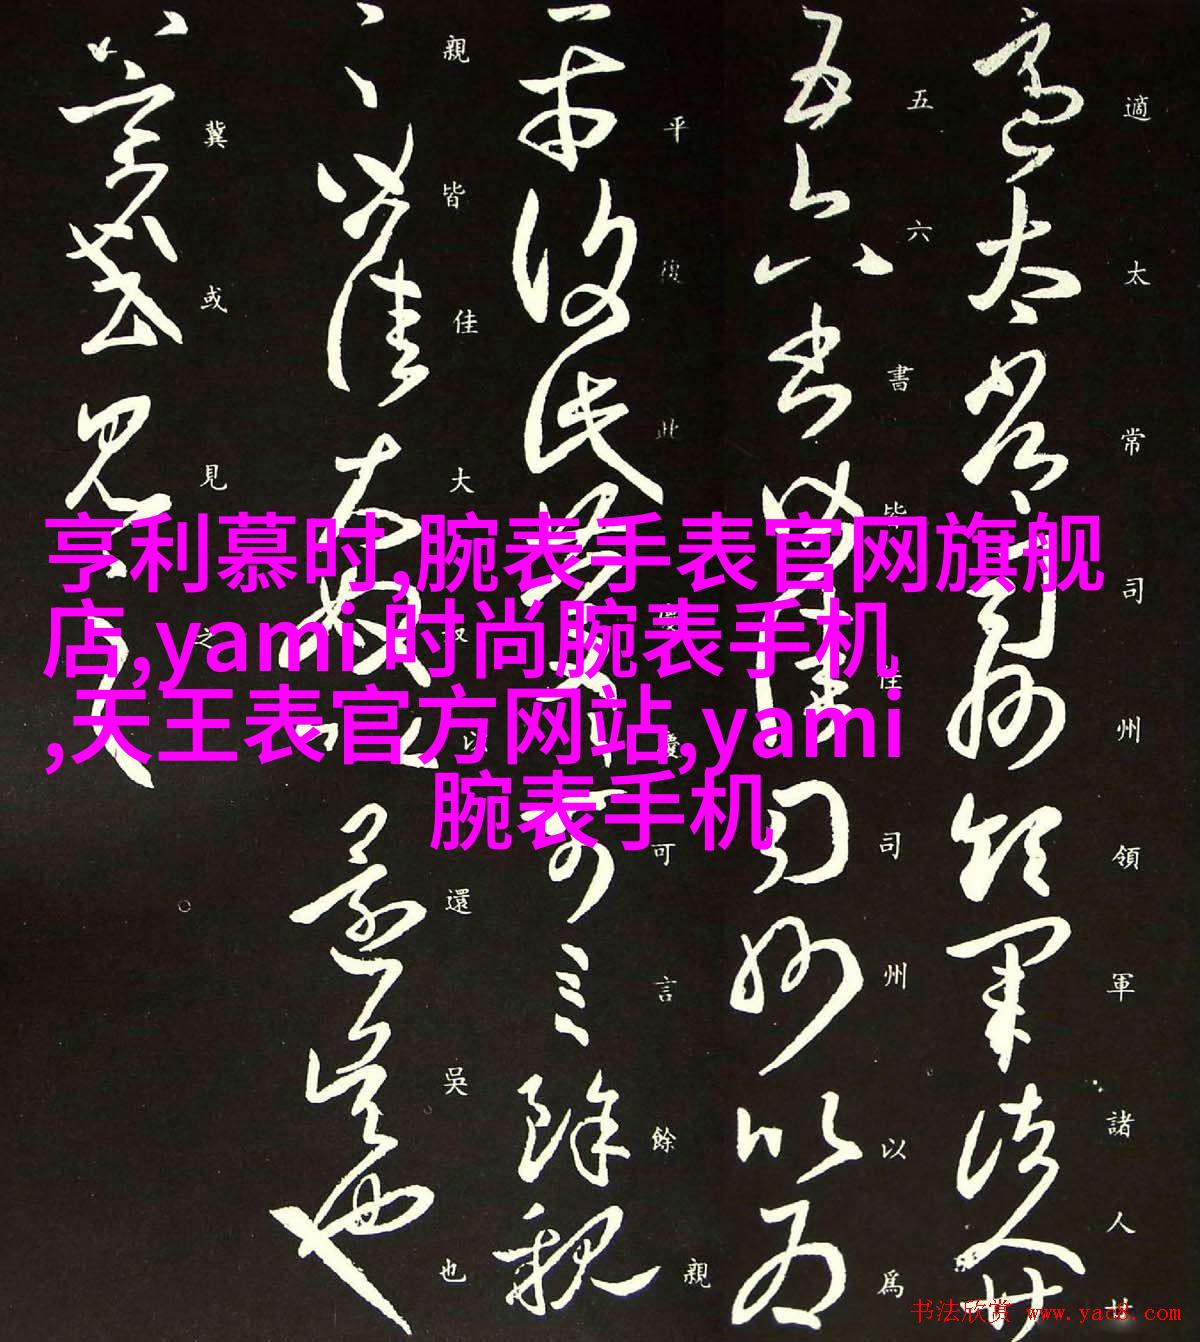 適太常司州領軍諸人廿
五六書皆佳司州以爲
平復此慶慶可言餘親
親皆佳大奴以還吳也
冀或見之
亨利慕时,腕表手表官网旗舰
店,yami 时尚腕表手机
,天王表官方网站,yami
腕表手机
书法欣赏 www.yac8.com